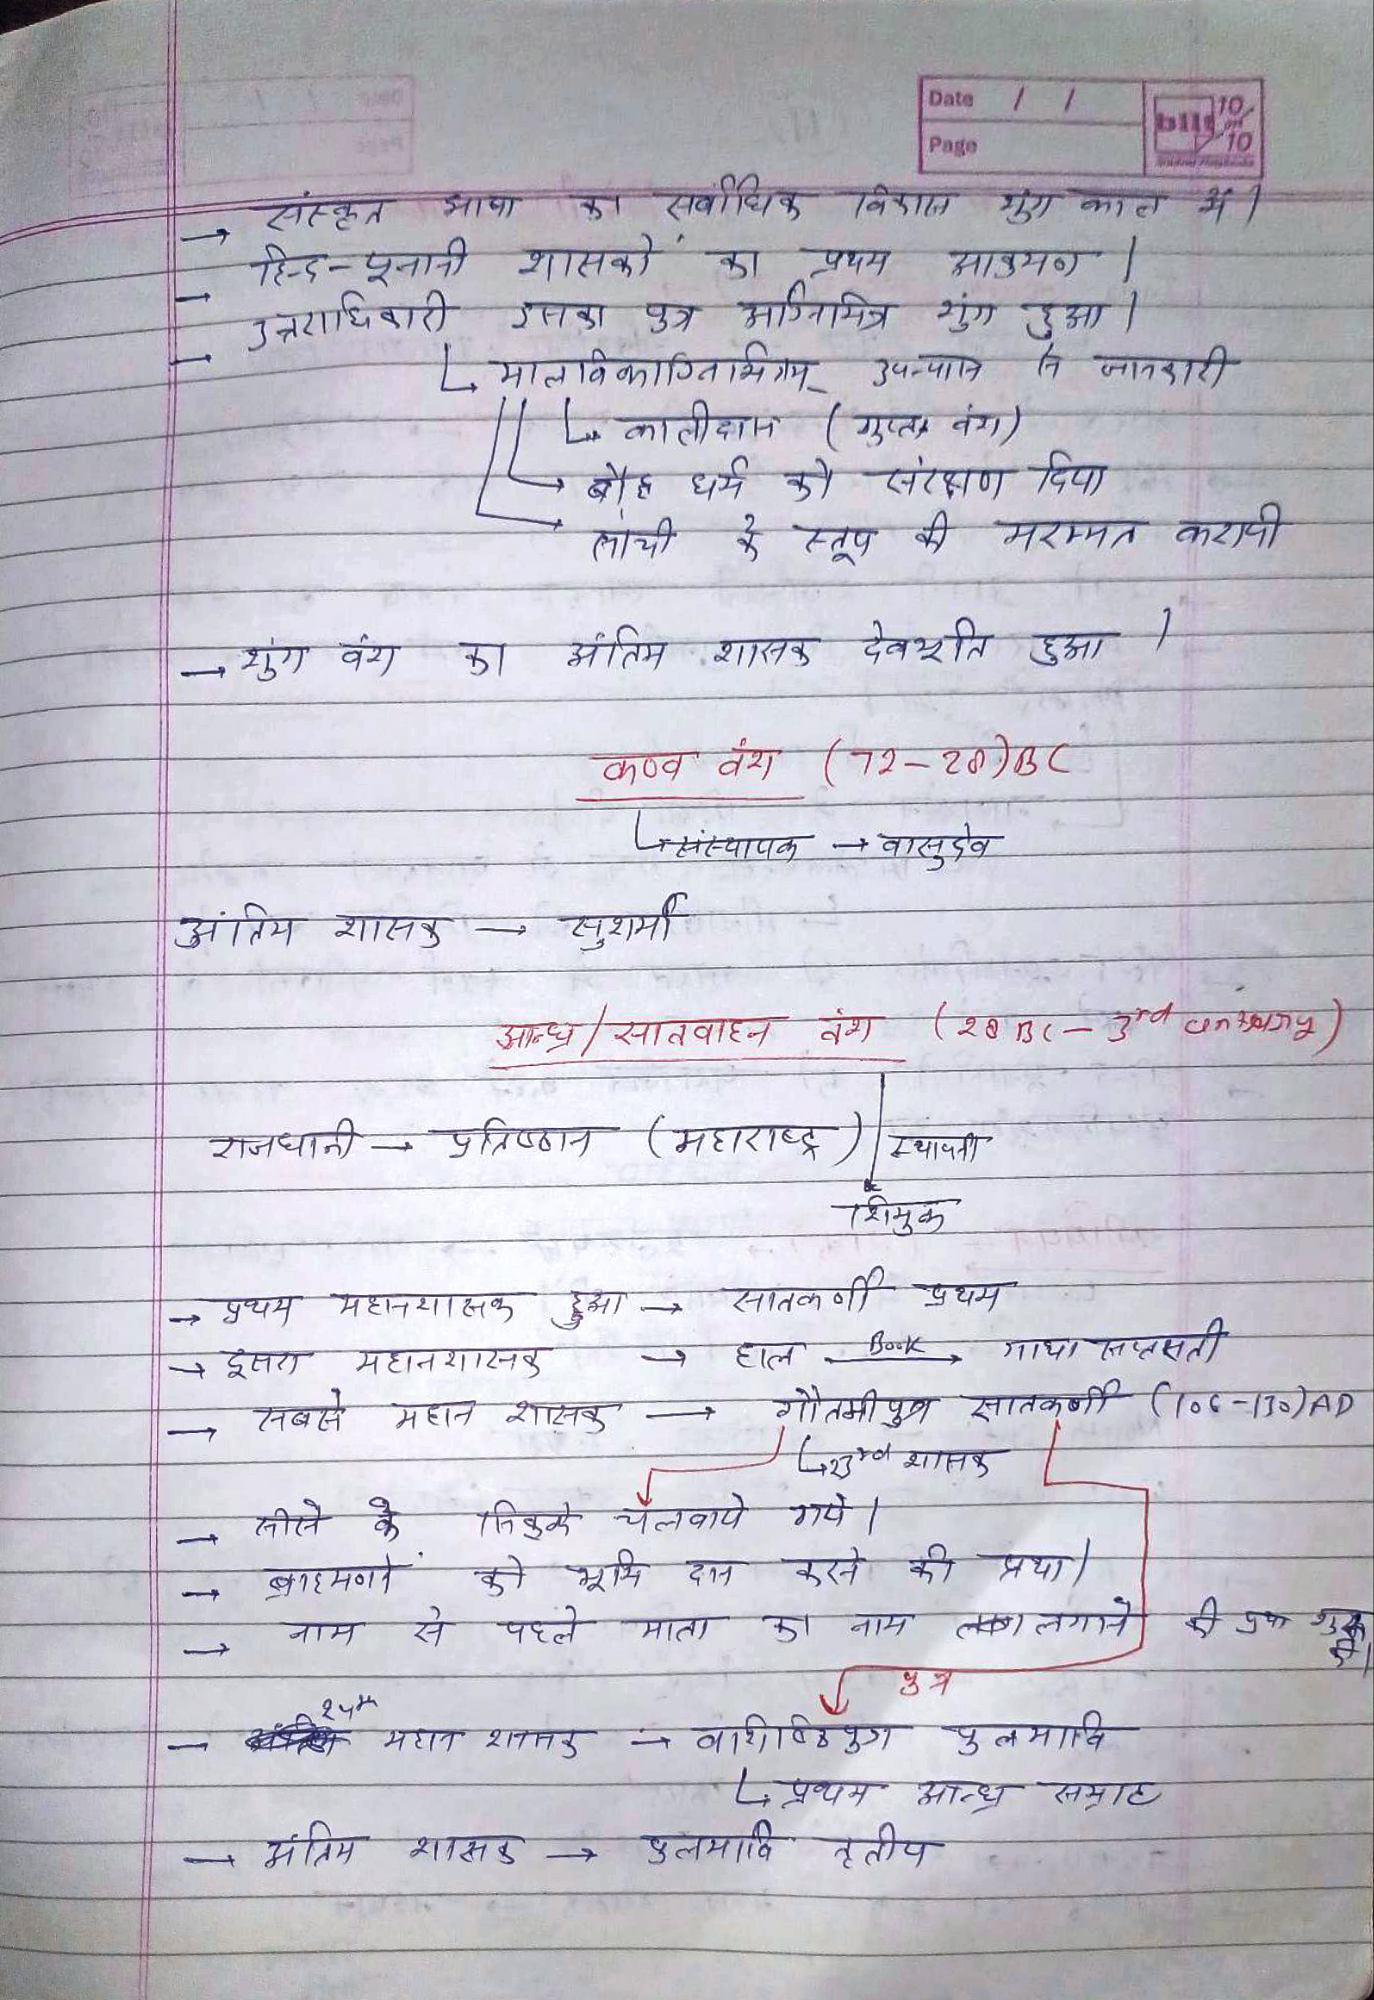 Date / /
Page
bilt 10 on 10
→ संस्कृत भाषा का सर्वाधिक विकास शुंग काल में।
→ हिन्द-यूनानी शासकों का प्रथम आक्रमण।
→ उत्तराधिकारी इसका पुत्र अग्निमित्र शुंग हुआ।
↳ मालविकाग्निमित्रम् उपन्यास से जानकारी
↳ कालीदास (गुप्त वंश)
→ बौद्ध धर्म को संरक्षण दिया
→ सांची के स्तूप की मरम्मत करायी
→ शुंग वंश का अंतिम शासक देवभूति हुआ।
कण्व वंश (72-28)BC
↳ संस्थापक → वासुदेव
अंतिम शासक → सुशर्मा
आन्ध्र/सातवाहन वंश (28 BC - 3rd century)
राजधानी → प्रतिष्ठान (महाराष्ट्र) स्थापती
शिमुक
→ प्रथम महानशासक हुआ → सातकर्णी प्रथम
→ दूसरा महानशासक → हाल Book → गाथा सप्तसती
→ सबसे महान शासक → गौतमीपुत्र सातकर्णी (106-130)AD
↳ 23rd शासक
→ सीसे के सिक्के चलवाये गये।
→ ब्राह्मणों को भूमि दान करने की प्रथा।
→ नाम से पहले माता का नाम लगाने की प्रथा शुरू की।
पुत्र
→ 24th महान शासक → वाशिष्ठिपुत्र पुलमावि
↳ प्रथम आन्ध्र सम्राट
→ अंतिम शासक → पुलमावि तृतीय